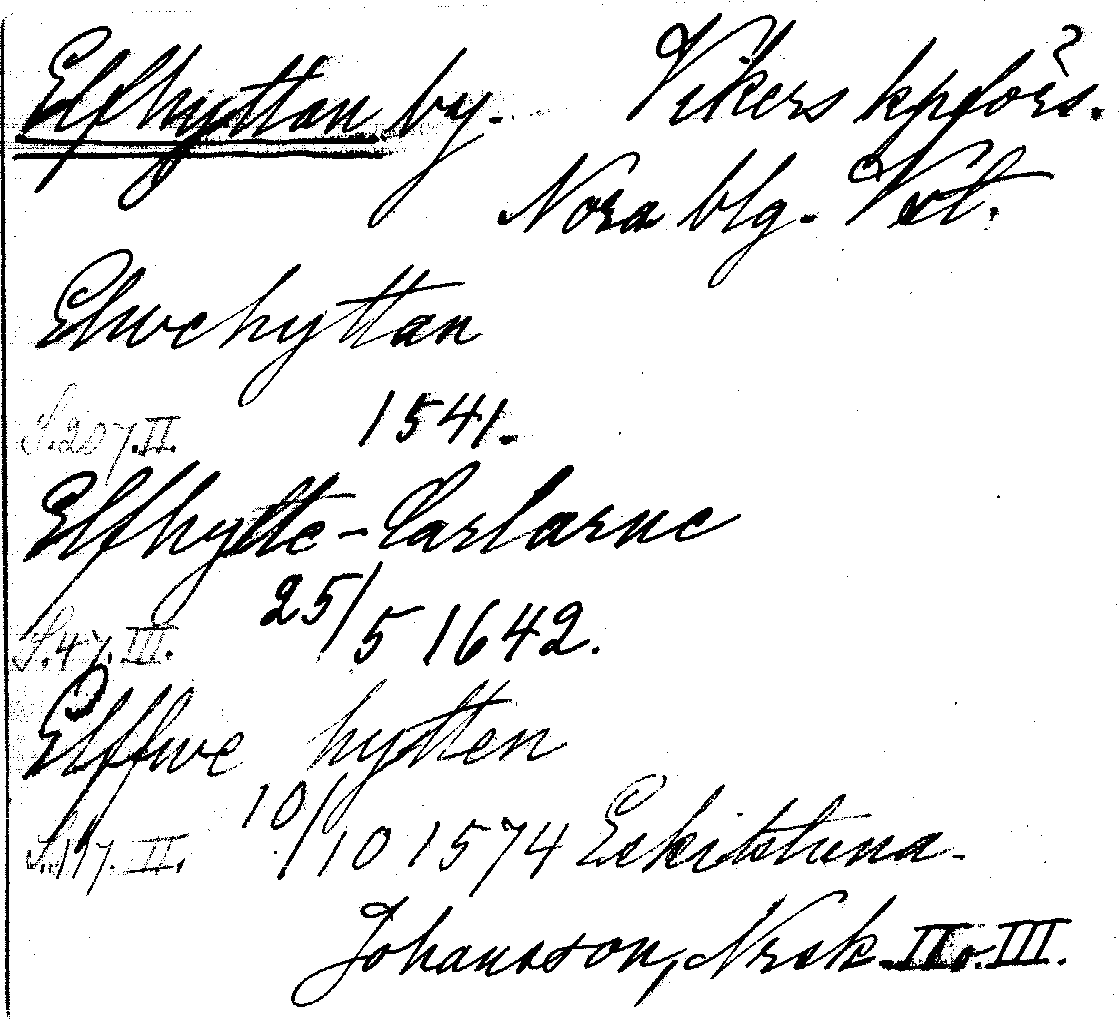 Elfhyttan by. Vikers kpförs.
Nora blg. Vstl.
Elwehyttan
S. 207. II. 1541.
Elfhytte-Carlarne
25/5 1642.
S. 47. III.
Elffwe hytten
S. 197. II. 10/10 1574 Eskilstuna
Johansson, Nrsk. II o. III.